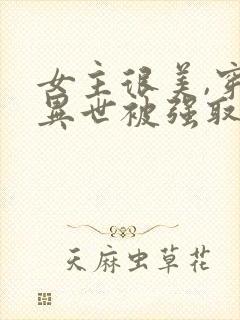 女主很美,穿
異世被强取
天麻虫草花